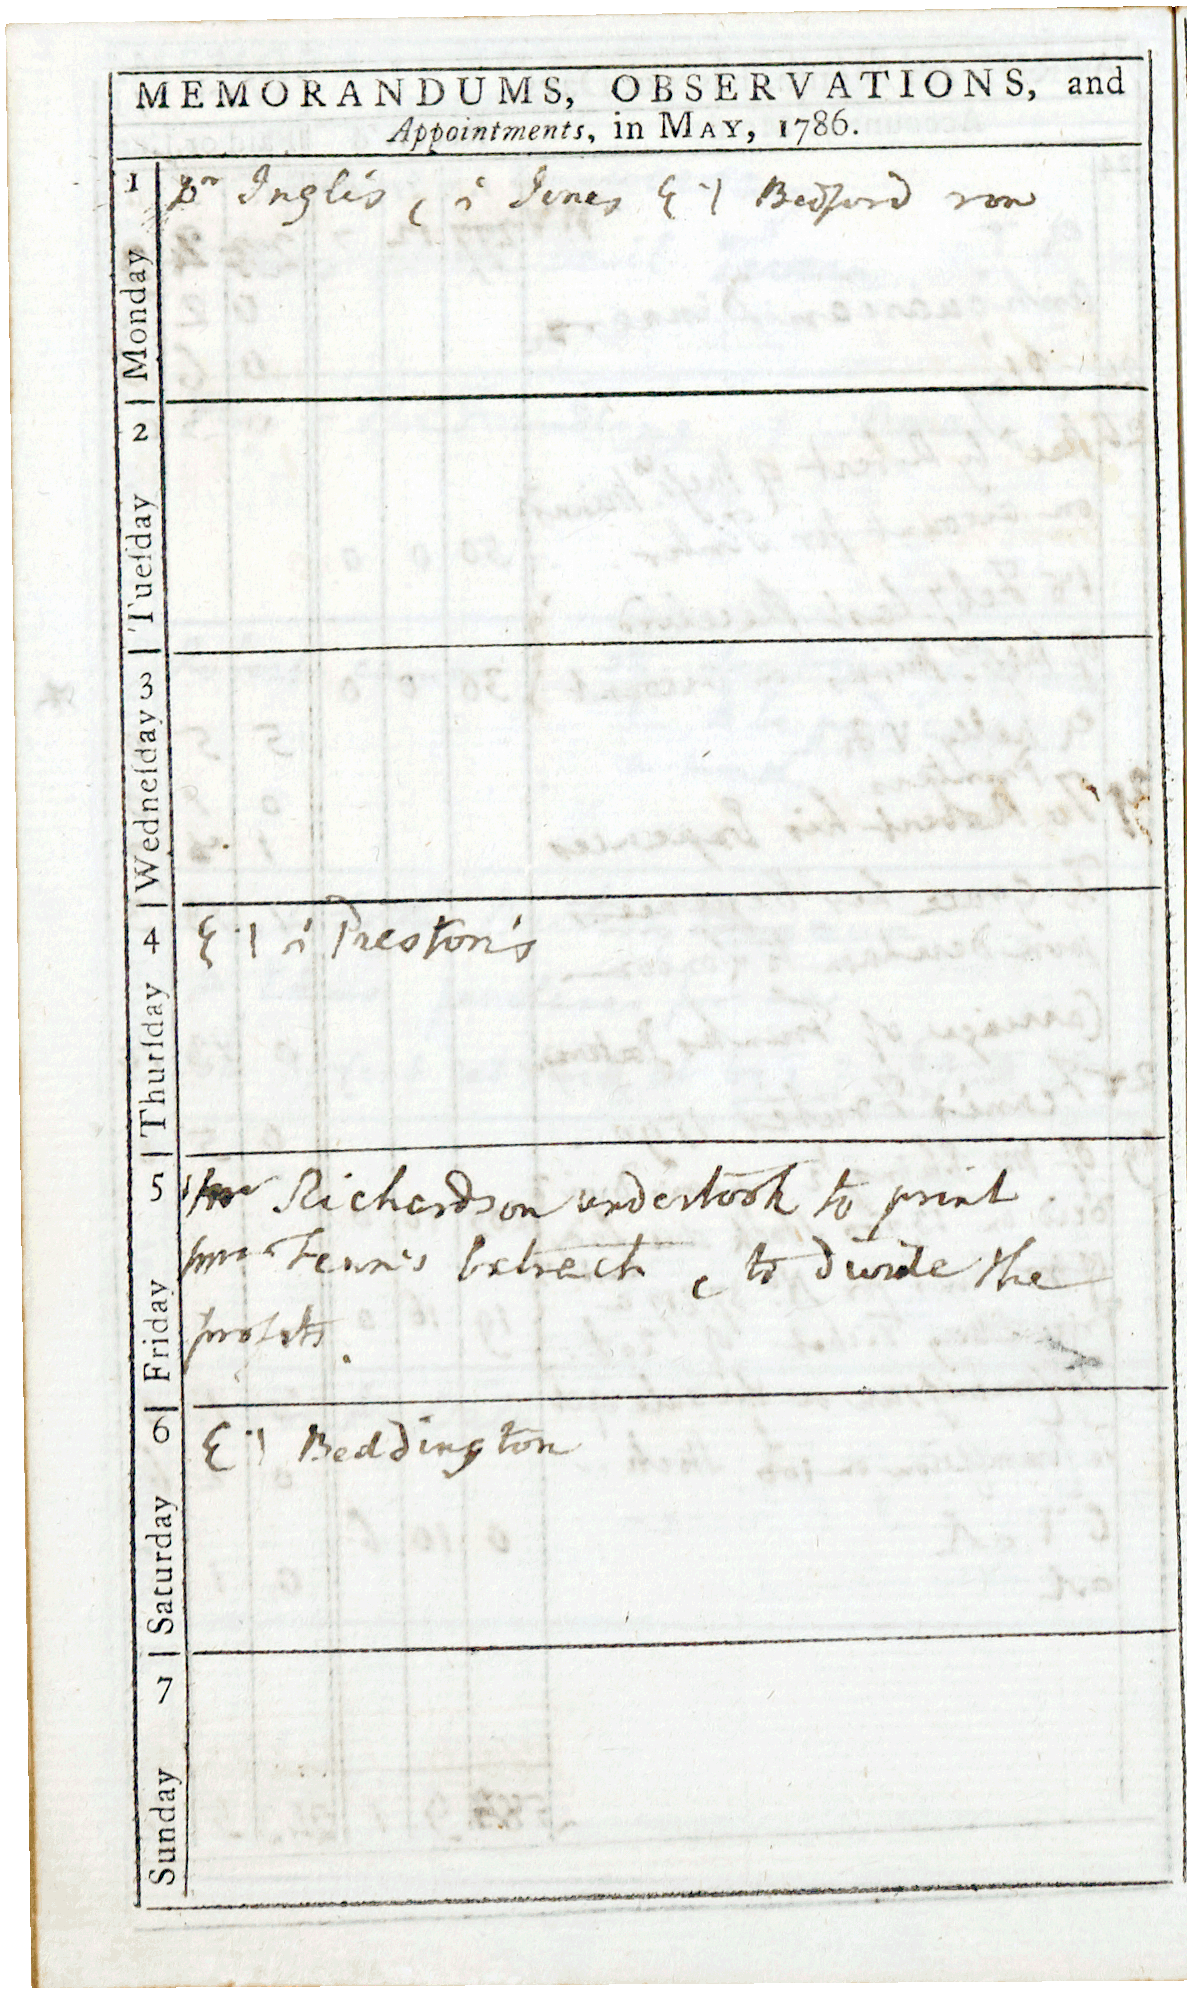 MEMORANDUMS, OBSERVATIONS, and
Appointments, in MAY, 1786.
1 Monday
Inglis, Jones Bedford row
2 Tueſday
3 Wedneſday
4 Thurſday
Preston's
5 Friday
Mr Richardson undertook to print
Extract, to divide the
profits.
6 Saturday
Beddington
7 Sunday